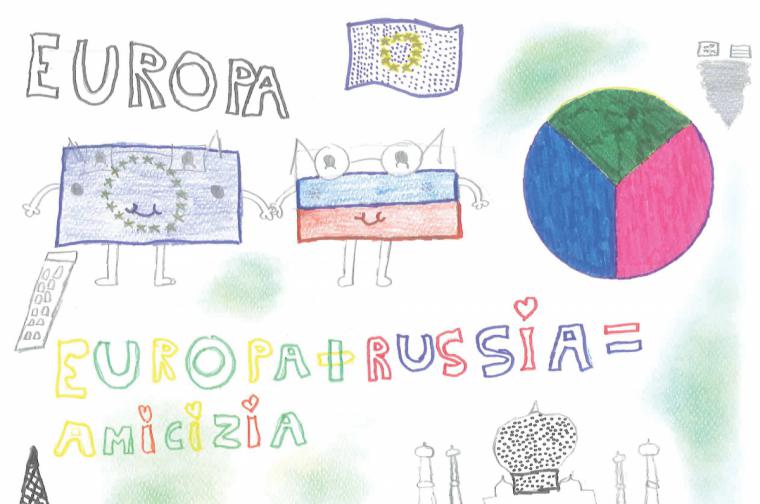 EUROPA
EUROPA+RUSSIA=
AMICIZIA